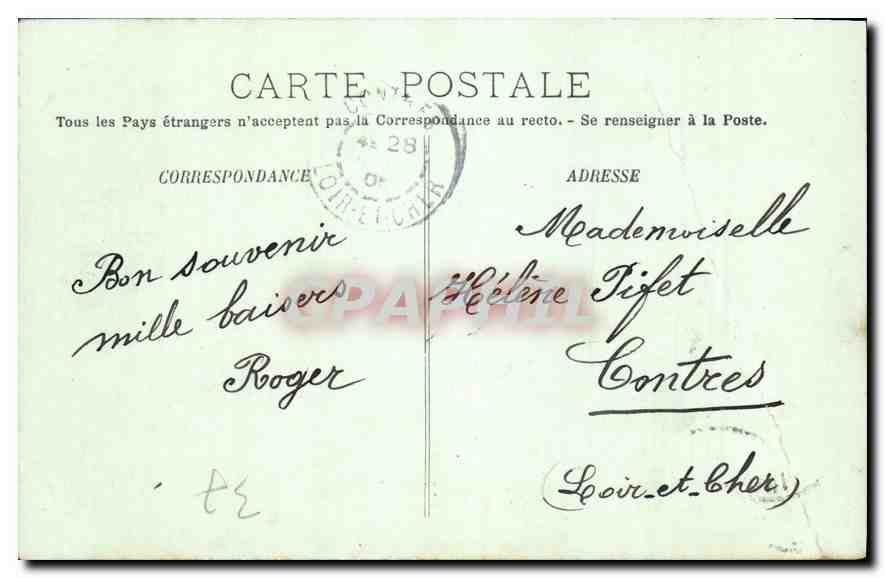 CARTE POSTALE
Tous les Pays étrangers n'acceptent pas la Correspondance au recto. - Se renseigner à la Poste.
CONTRES
28
LOIR-ET-CHER
CORRESPONDANCE
Bon souvenir
mille baisers
Roger
ADRESSE
Mademoiselle
Hélène Pifet
Contres
(Loir-et-Cher)
GRAPHIL